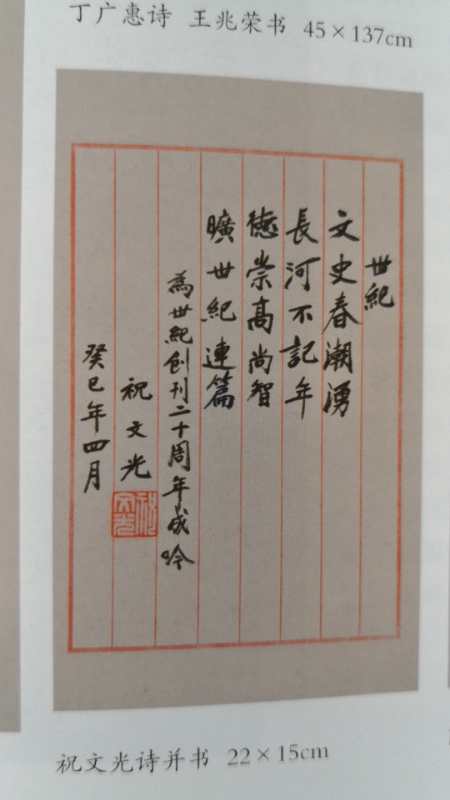 丁广惠诗 王兆荣书 45×137cm
世紀
文史春潮湧
長河不記年
德崇高尚智
曠世紀連篇
為世紀创刊二十周年成吟
祝文光
癸巳年四月
祝文光
祝文光诗并书 22×15cm